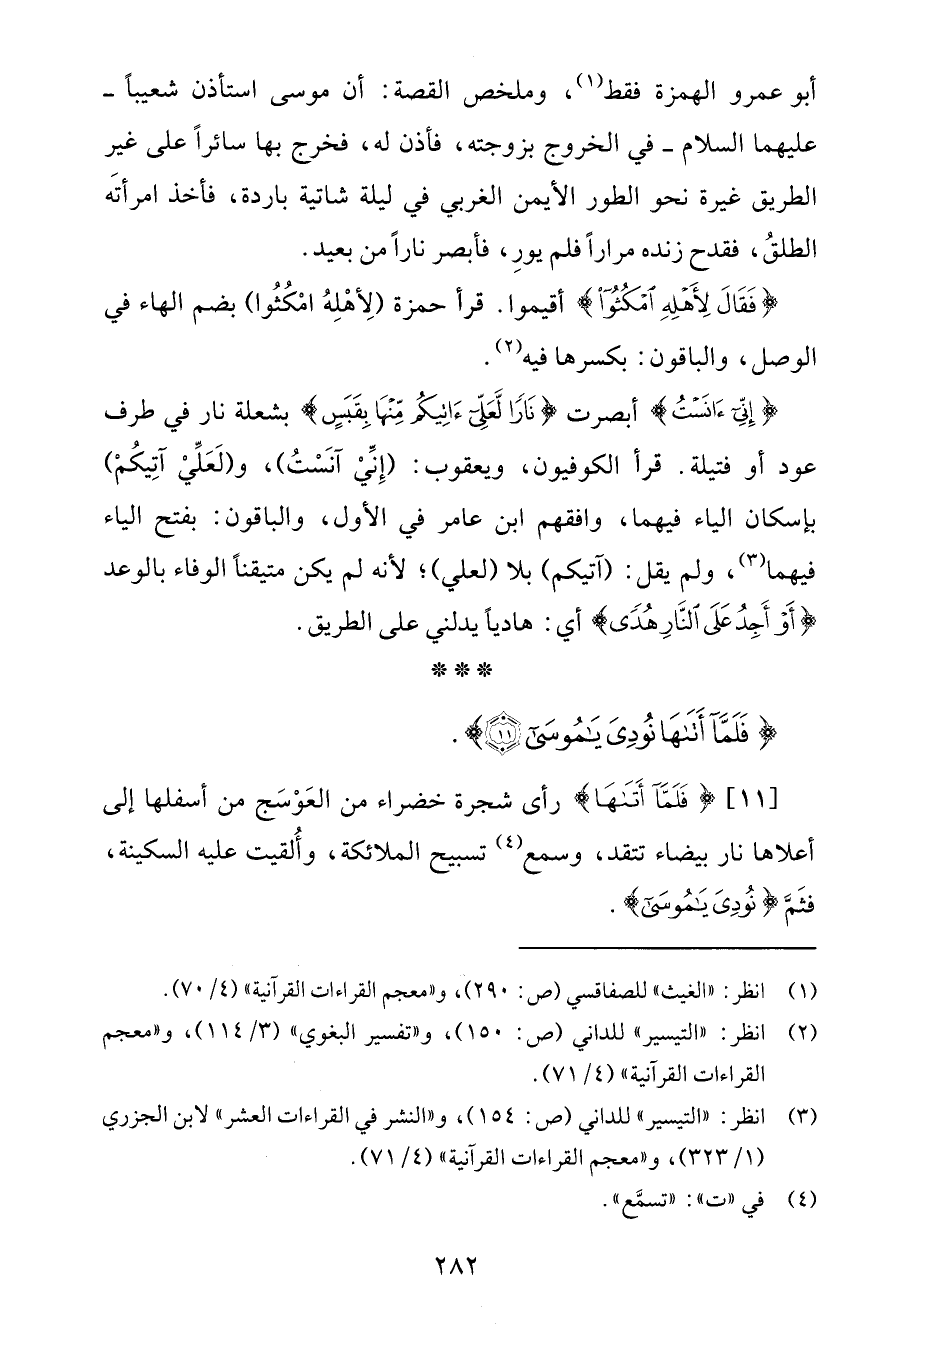 أبو عمرو الهمزة فقط(١)، وملخص القصة: أن موسى استأذن شعيباً ـ
عليهما السلام ـ في الخروج بزوجته، فأذن له، فخرج بها سائراً على غير
الطريق غيرة نحو الطور الأيمن الغربي في ليلة شاتية باردة، فأخذ امرأتَه
الطلقُ، فقدح زنده مراراً فلم يورِ، فأبصر ناراً من بعيد.
﴿فَقَالَ لِأَهْلِهِ ٱمْكُثُوٓا۟﴾ أقيموا. قرأ حمزة (لِأَهْلِهُ امْكُثُوا) بضم الهاء في
الوصل، والباقون: بكسرها فيه(٢).
﴿إِنِّىٓ ءَانَسْتُ﴾ أبصرت ﴿نَارًا لَّعَلِّىٓ ءَاتِيكُم مِّنْهَا بِقَبَسٍ﴾ بشعلة نار في طرف
عود أو فتيلة. قرأ الكوفيون، ويعقوب: (إِنِّيْ آنَسْتُ)، و(لَعَلِّيْ آتِيكُمْ)
بإسكان الياء فيهما، وافقهم ابن عامر في الأول، والباقون: بفتح الياء
فيهما(٣)، ولم يقل: (آتيكم) بلا (لعلي)؛ لأنه لم يكن متيقناً الوفاء بالوعد
﴿أَوْ أَجِدُ عَلَى ٱلنَّارِ هُدًى﴾ أي: هادياً يدلني على الطريق.
* * *
﴿فَلَمَّآ أَتَىٰهَا نُودِىَ يَٰمُوسَىٰٓ ١١﴾.
[١١] ﴿فَلَمَّآ أَتَىٰهَا﴾ رأى شجرة خضراء من العَوْسَج من أسفلها إلى
أعلاها نار بيضاء تتقد، وسمع(٤) تسبيح الملائكة، وأُلقيت عليه السكينة،
فثَمَّ ﴿نُودِىَ يَٰمُوسَىٰٓ﴾.
(١) انظر: «الغيث» للصفاقسي (ص: ٢٩٠)، و«معجم القراءات القرآنية» (٤/ ٧٠).
(٢) انظر: «التيسير» للداني (ص: ١٥٠)، و«تفسير البغوي» (٣/ ١١٤)، و«معجم
القراءات القرآنية» (٤/ ٧١).
(٣) انظر: «التيسير» للداني (ص: ١٥٤)، و«النشر في القراءات العشر» لابن الجزري
(١/ ٣٢٣)، و«معجم القراءات القرآنية» (٤/ ٧١).
(٤) في «ت»: «تسمَّع».
٢٨٢